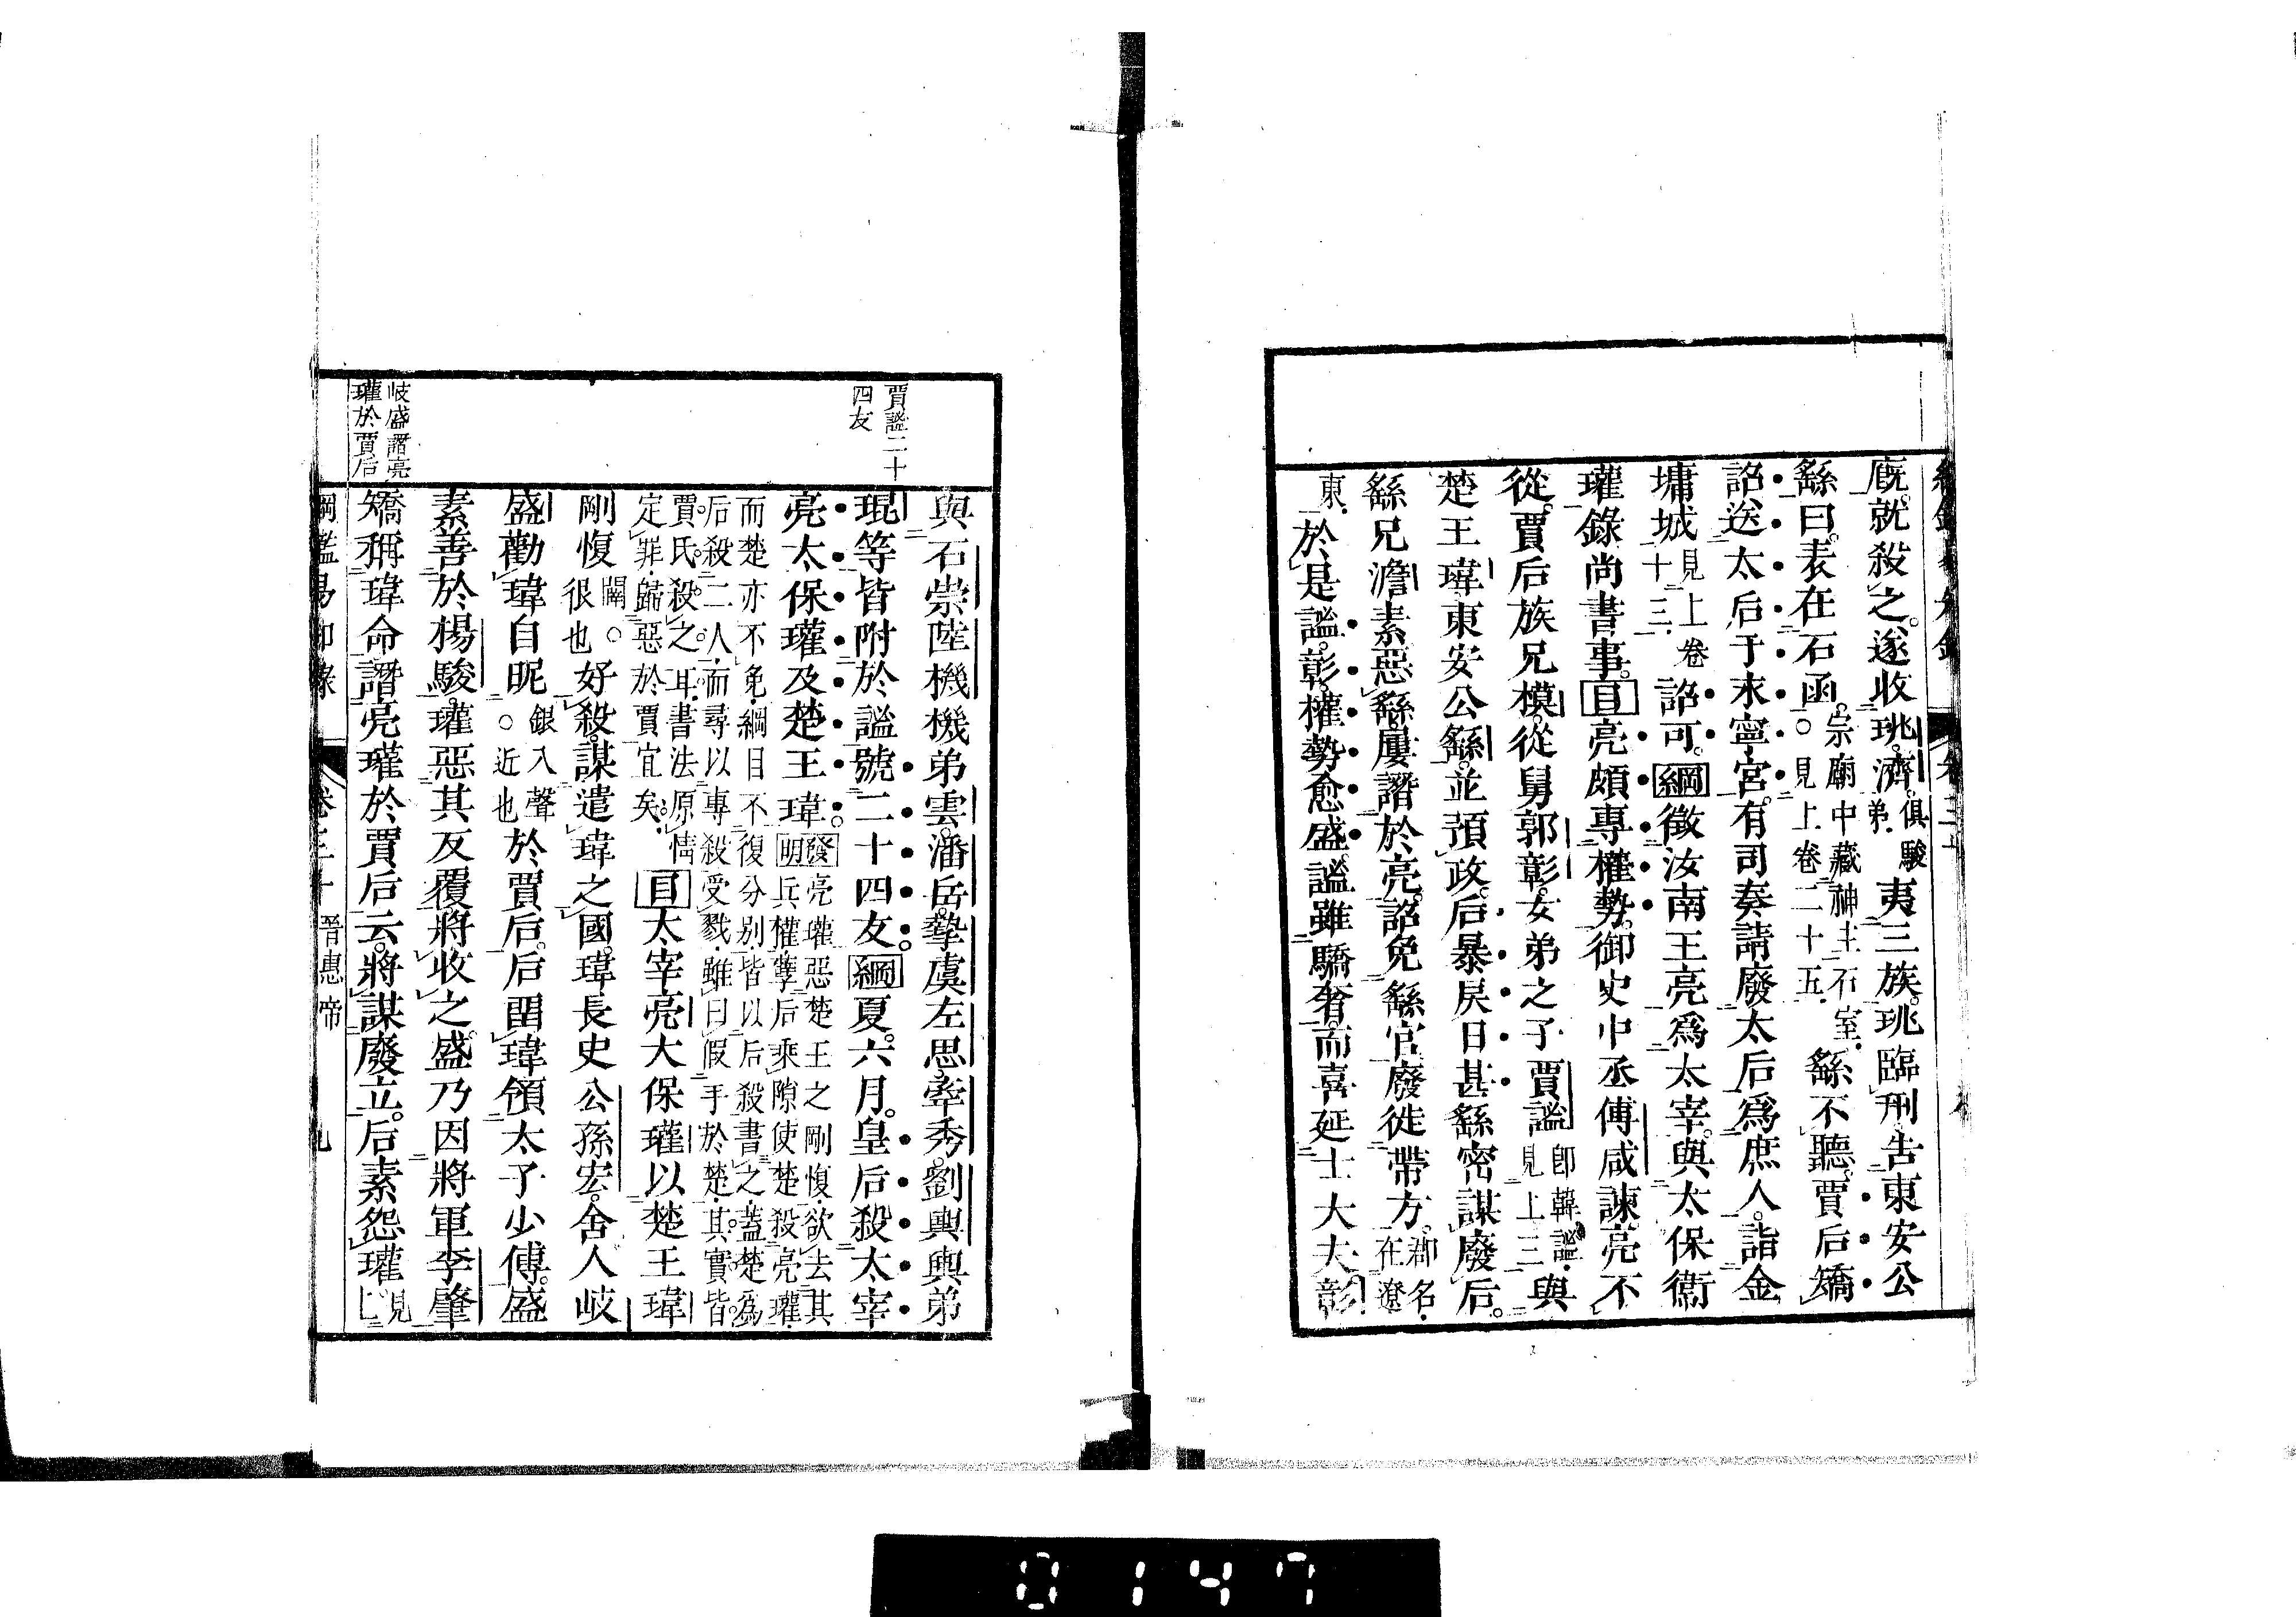 廐就殺之遂收珧濟俱駿弟夷三族珧臨刑告東安公
繇曰表在石函宗廟中藏神主石室○見上卷二十五繇不聽賈后矯
詔送太后于永寧宮有司奏請廢太后爲庶人詣金
墉城見上卷十三詔可綱徵汝南王亮爲太宰與太保衞
瓘錄尚書事目亮頗專權勢御史中丞傅咸諫亮不
從賈后族兄模從舅郭彰女弟之子賈謐卽韓謐見上三與
楚王瑋東安公繇並預政后暴戾日甚繇密謀廢后
繇兄澹素惡繇屢譖於亮詔免繇官廢徙帶方郡名在遼
東於是謐彰權勢愈盛謐雖驕奢而喜延士大夫彰
賈謐二十四友
與石崇陸機機弟雲潘岳摯虞左思牽秀劉輿輿弟
琨等皆附於謐號二十四友綱夏六月皇后殺太宰
亮太保瓘及楚王瑋發明亮瓘惡楚王之剛愎欲去其兵權孽后乘隙使楚殺亮瓘
而楚亦不免綱目不復分別皆以后殺書之蓋楚爲后殺二人而尋以專殺受戮雖曰假手於楚其實皆
賈氏殺之耳書法原情定罪歸惡於賈宜矣目太宰亮太保瓘以楚王瑋
剛愎闢○很也好殺謀遣瑋之國瑋長史公孫宏舍人岐
盛勸瑋自昵銀入聲○近也於賈后后留瑋領太子少傅盛
素善於楊駿瓘惡其反覆將收之盛乃因將軍李肇
矯稱瑋命譖亮瓘於賈后云將謀廢立后素怨瓘見上
岐盛譖亮瓘於賈后
綱鑑易知錄 卷三十 晉惠帝 九
0147